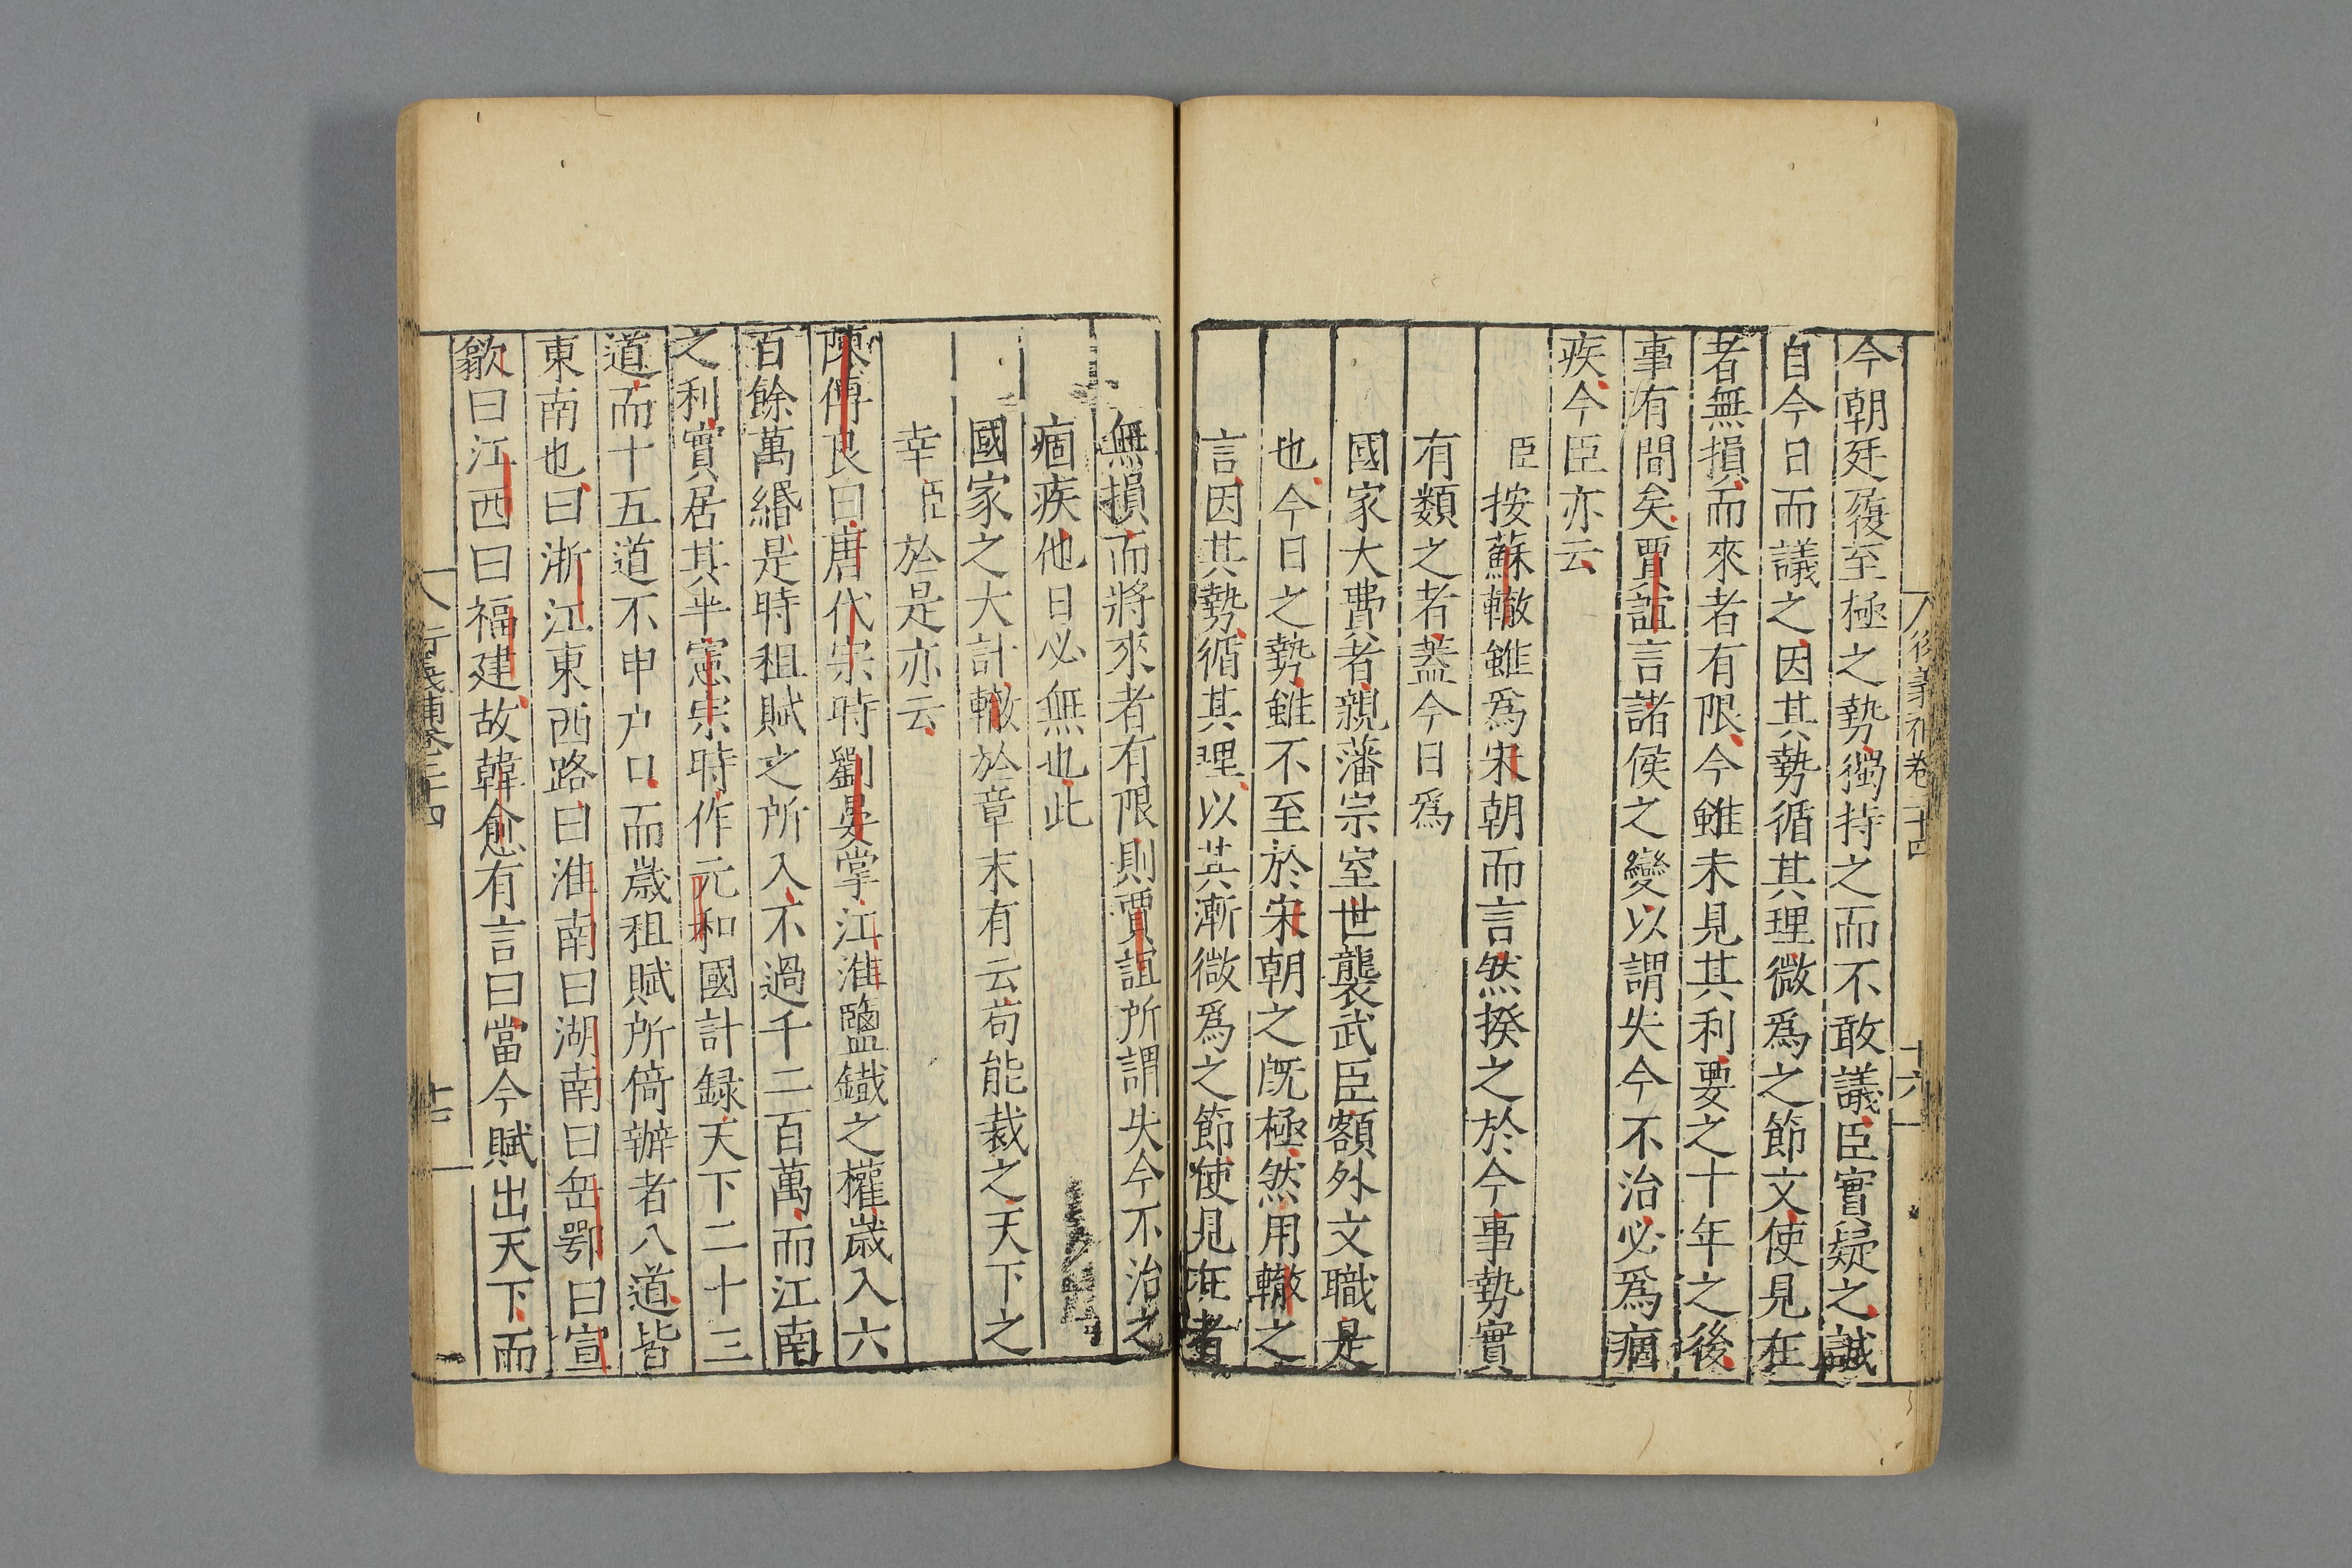 今朝廷履至極之勢獨持之而不敢議臣實疑之誠
自今日而議之因其勢循其理微爲之節文使見在
者無損而來者有限今雖未見其利要之十年之後
事有間矣賈誼言諸侯之變以謂失今不治必爲痼
疾今臣亦云
臣按蘇轍雖爲宋朝而言然揆之於今事勢實
有類之者蓋今日爲
國家大費者親藩宗室世襲武臣額外文職是
也今日之勢雖不至於宋朝之旣極然用轍之
言因其勢循其理以其漸微爲之節使見在者
無損而將來者有限則賈誼所謂失今不治之
痼疾他日必無也此
國家之大計轍於章末有云苟能裁之天下之
幸臣於是亦云
陳傅良曰唐代宗時劉晏掌江淮鹽鐵之權歲入六
百餘萬緡是時租賦之所入不過千二百萬而江南
之利實居其半憲宗時作元和國計録天下二十三
道而十五道不申户口而歲租賦所倚辦者八道皆
東南也曰浙江東西路曰淮南曰湖南曰岳鄂曰宣
歙曰江西曰福建故韓愈有言曰當今賦出天下而